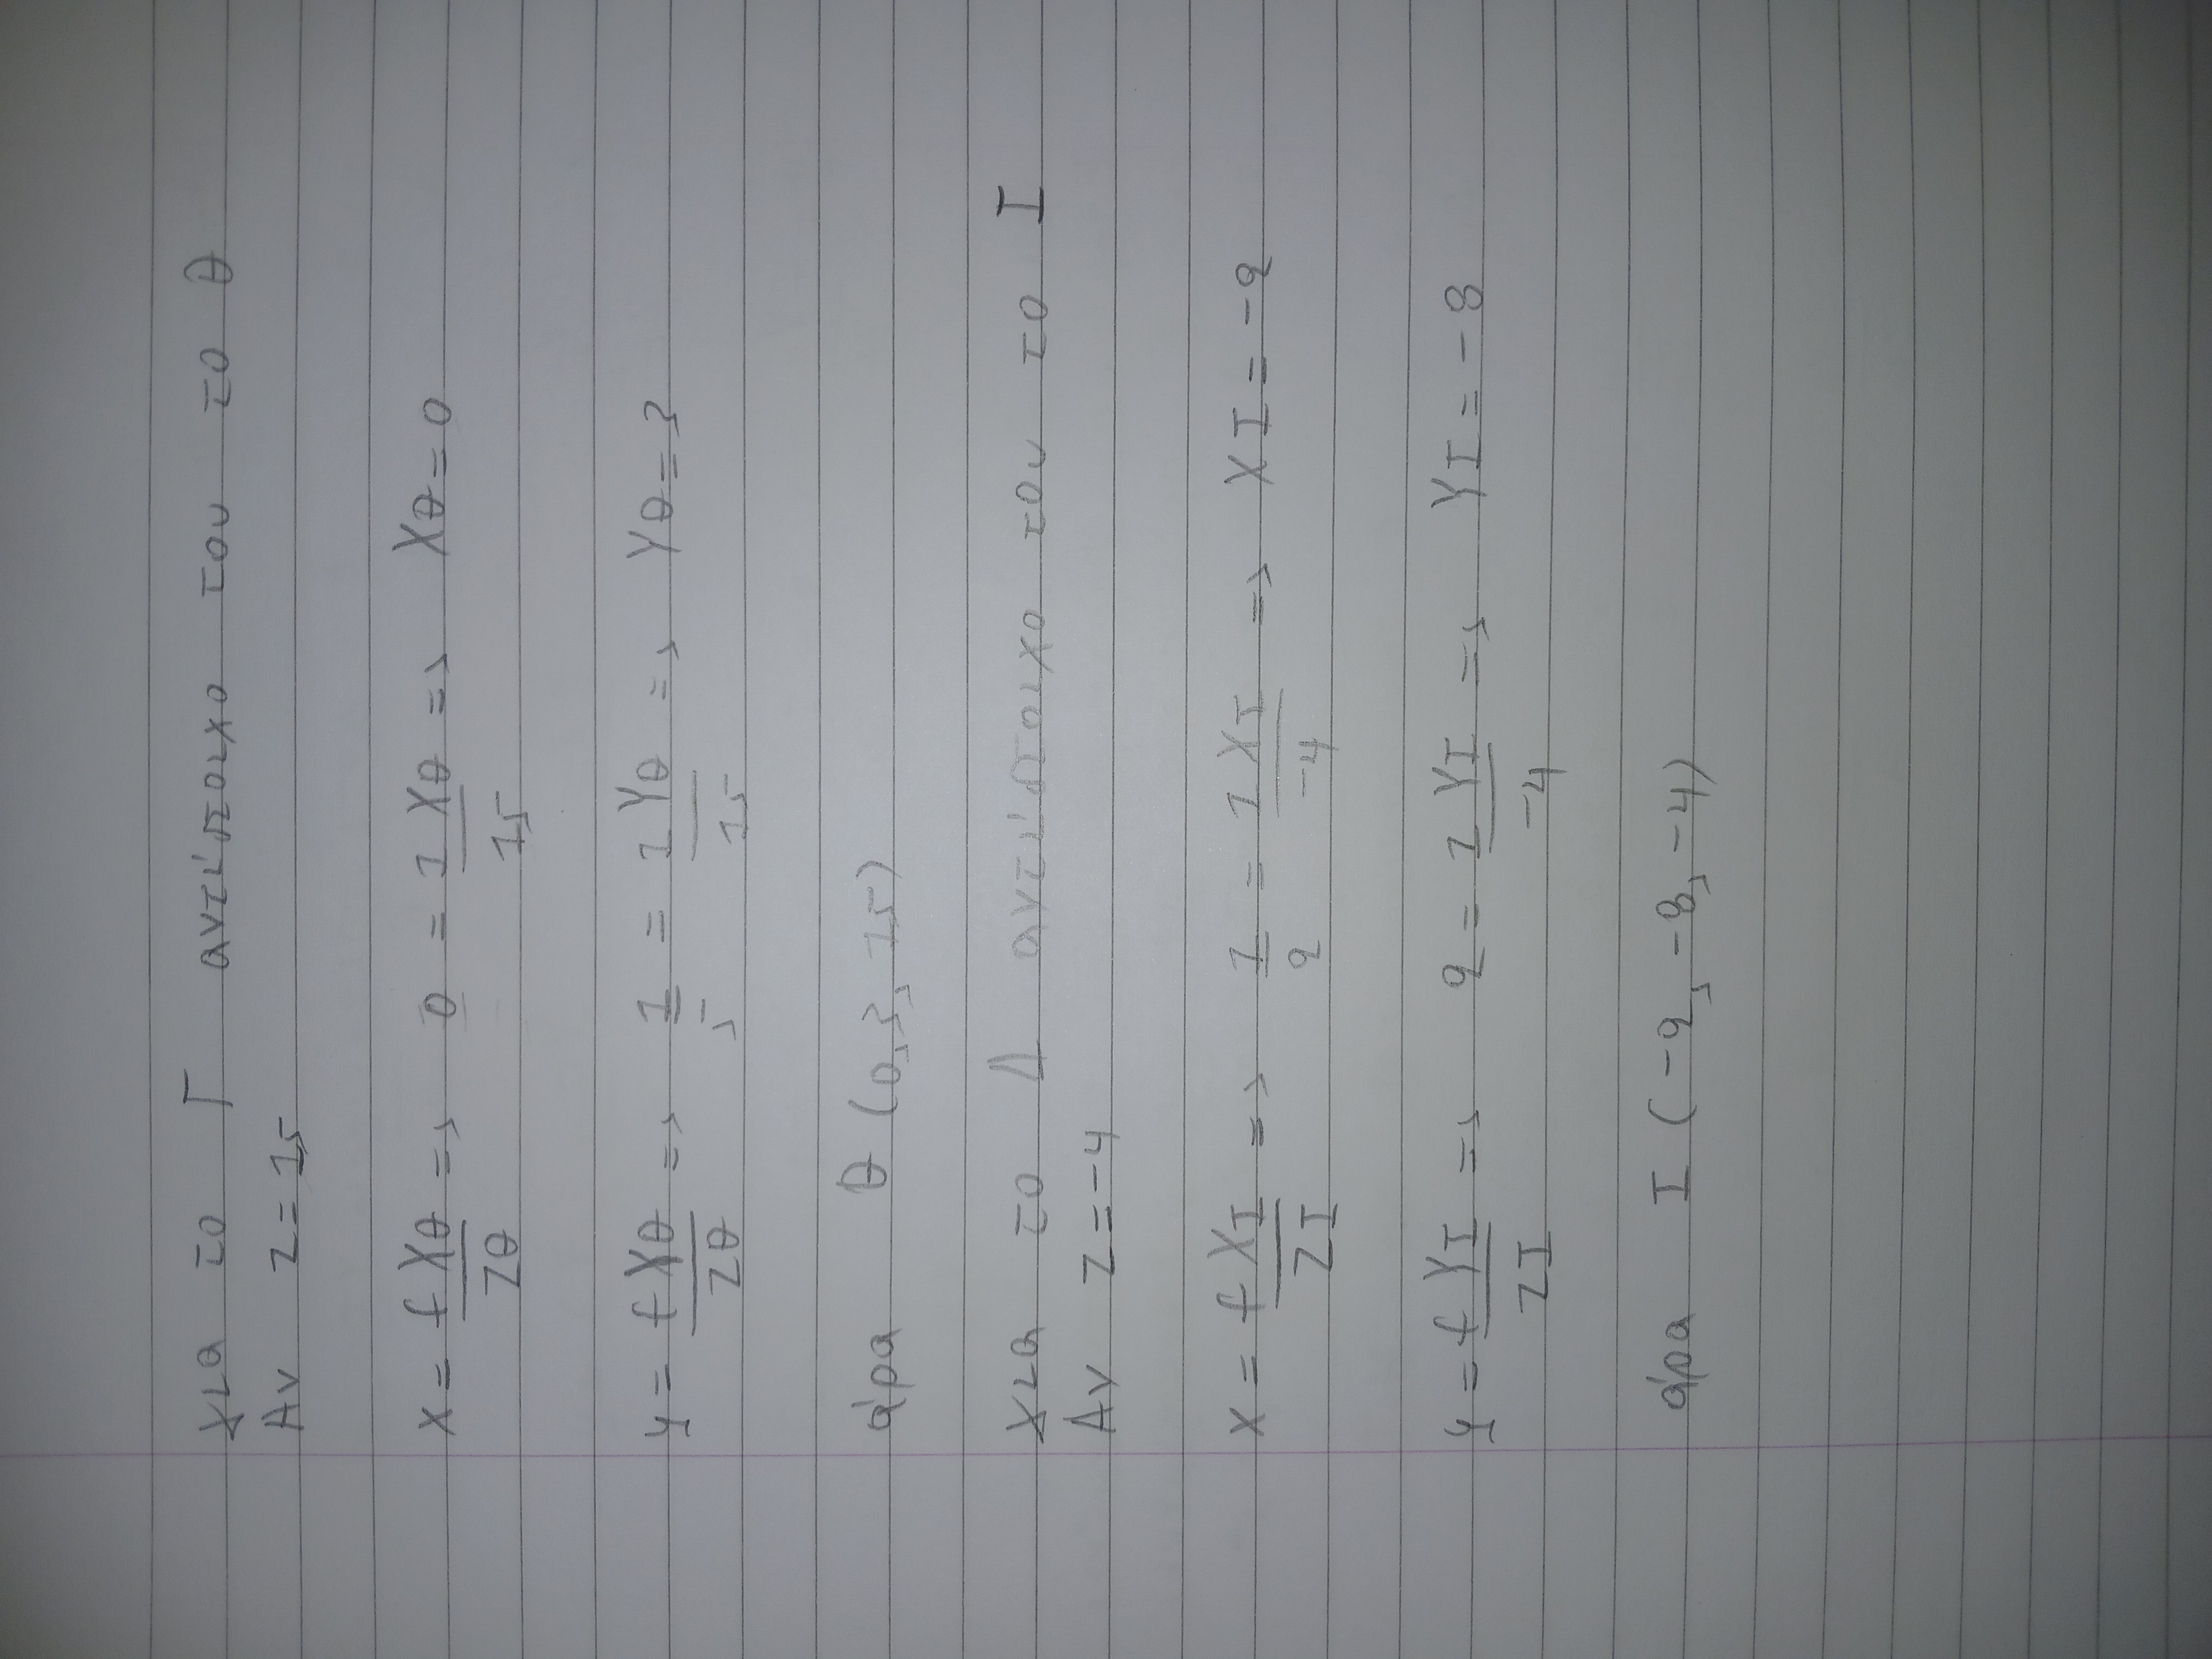 για το Γ αντίστοιχο του το θ
Αν Z = 15
x = f Xθ / Zθ => 0 = 1 Xθ / 15 => Xθ = 0
y = f Yθ / Zθ => 1 / 5 = 1 Yθ / 15 => Yθ = 3
άρα θ (0, 3, 15)
για το Δ αντίστοιχο του το I
Αν Z = -4
x = f XI / ZI => 1 / 2 = 1 XI / -4 => XI = -2
y = f YI / ZI => 2 = 1 YI / -4 => YI = -8
άρα I (-2, -8, -4)